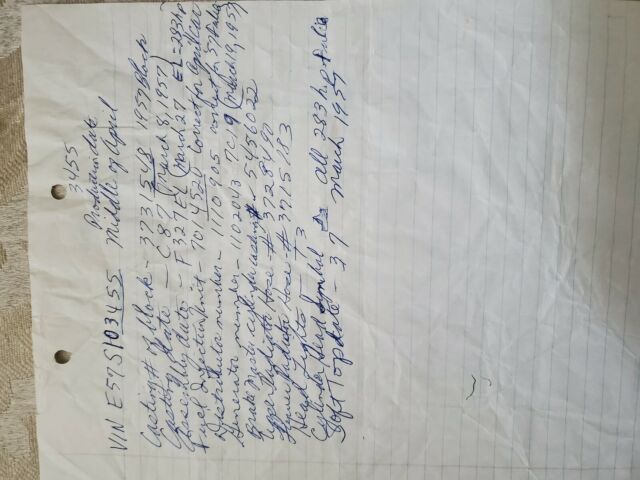 3455
Production date
VIN E57S103455 middle of April
Casting # of block - 3731548 1957 Block
Casting date - C 8 7 (March 8, 1957)
Assembly date - F327EL (March 27 EL = 283 hp
Fuel Injection Unit - 7014520 Correct for April car
Distributor number - 1110905 correct for 57 Fulie
Generator number - 1102043 7C19 (March 19, 1957)
# 5456022
Upper Radiator Hose - # 3728490
Lower Radiator Hose - # 3715183
Head Lights - T 3
Cylinder Head Symbol all 283 hp + Fulie
Soft Top date - 3 7 March 1957